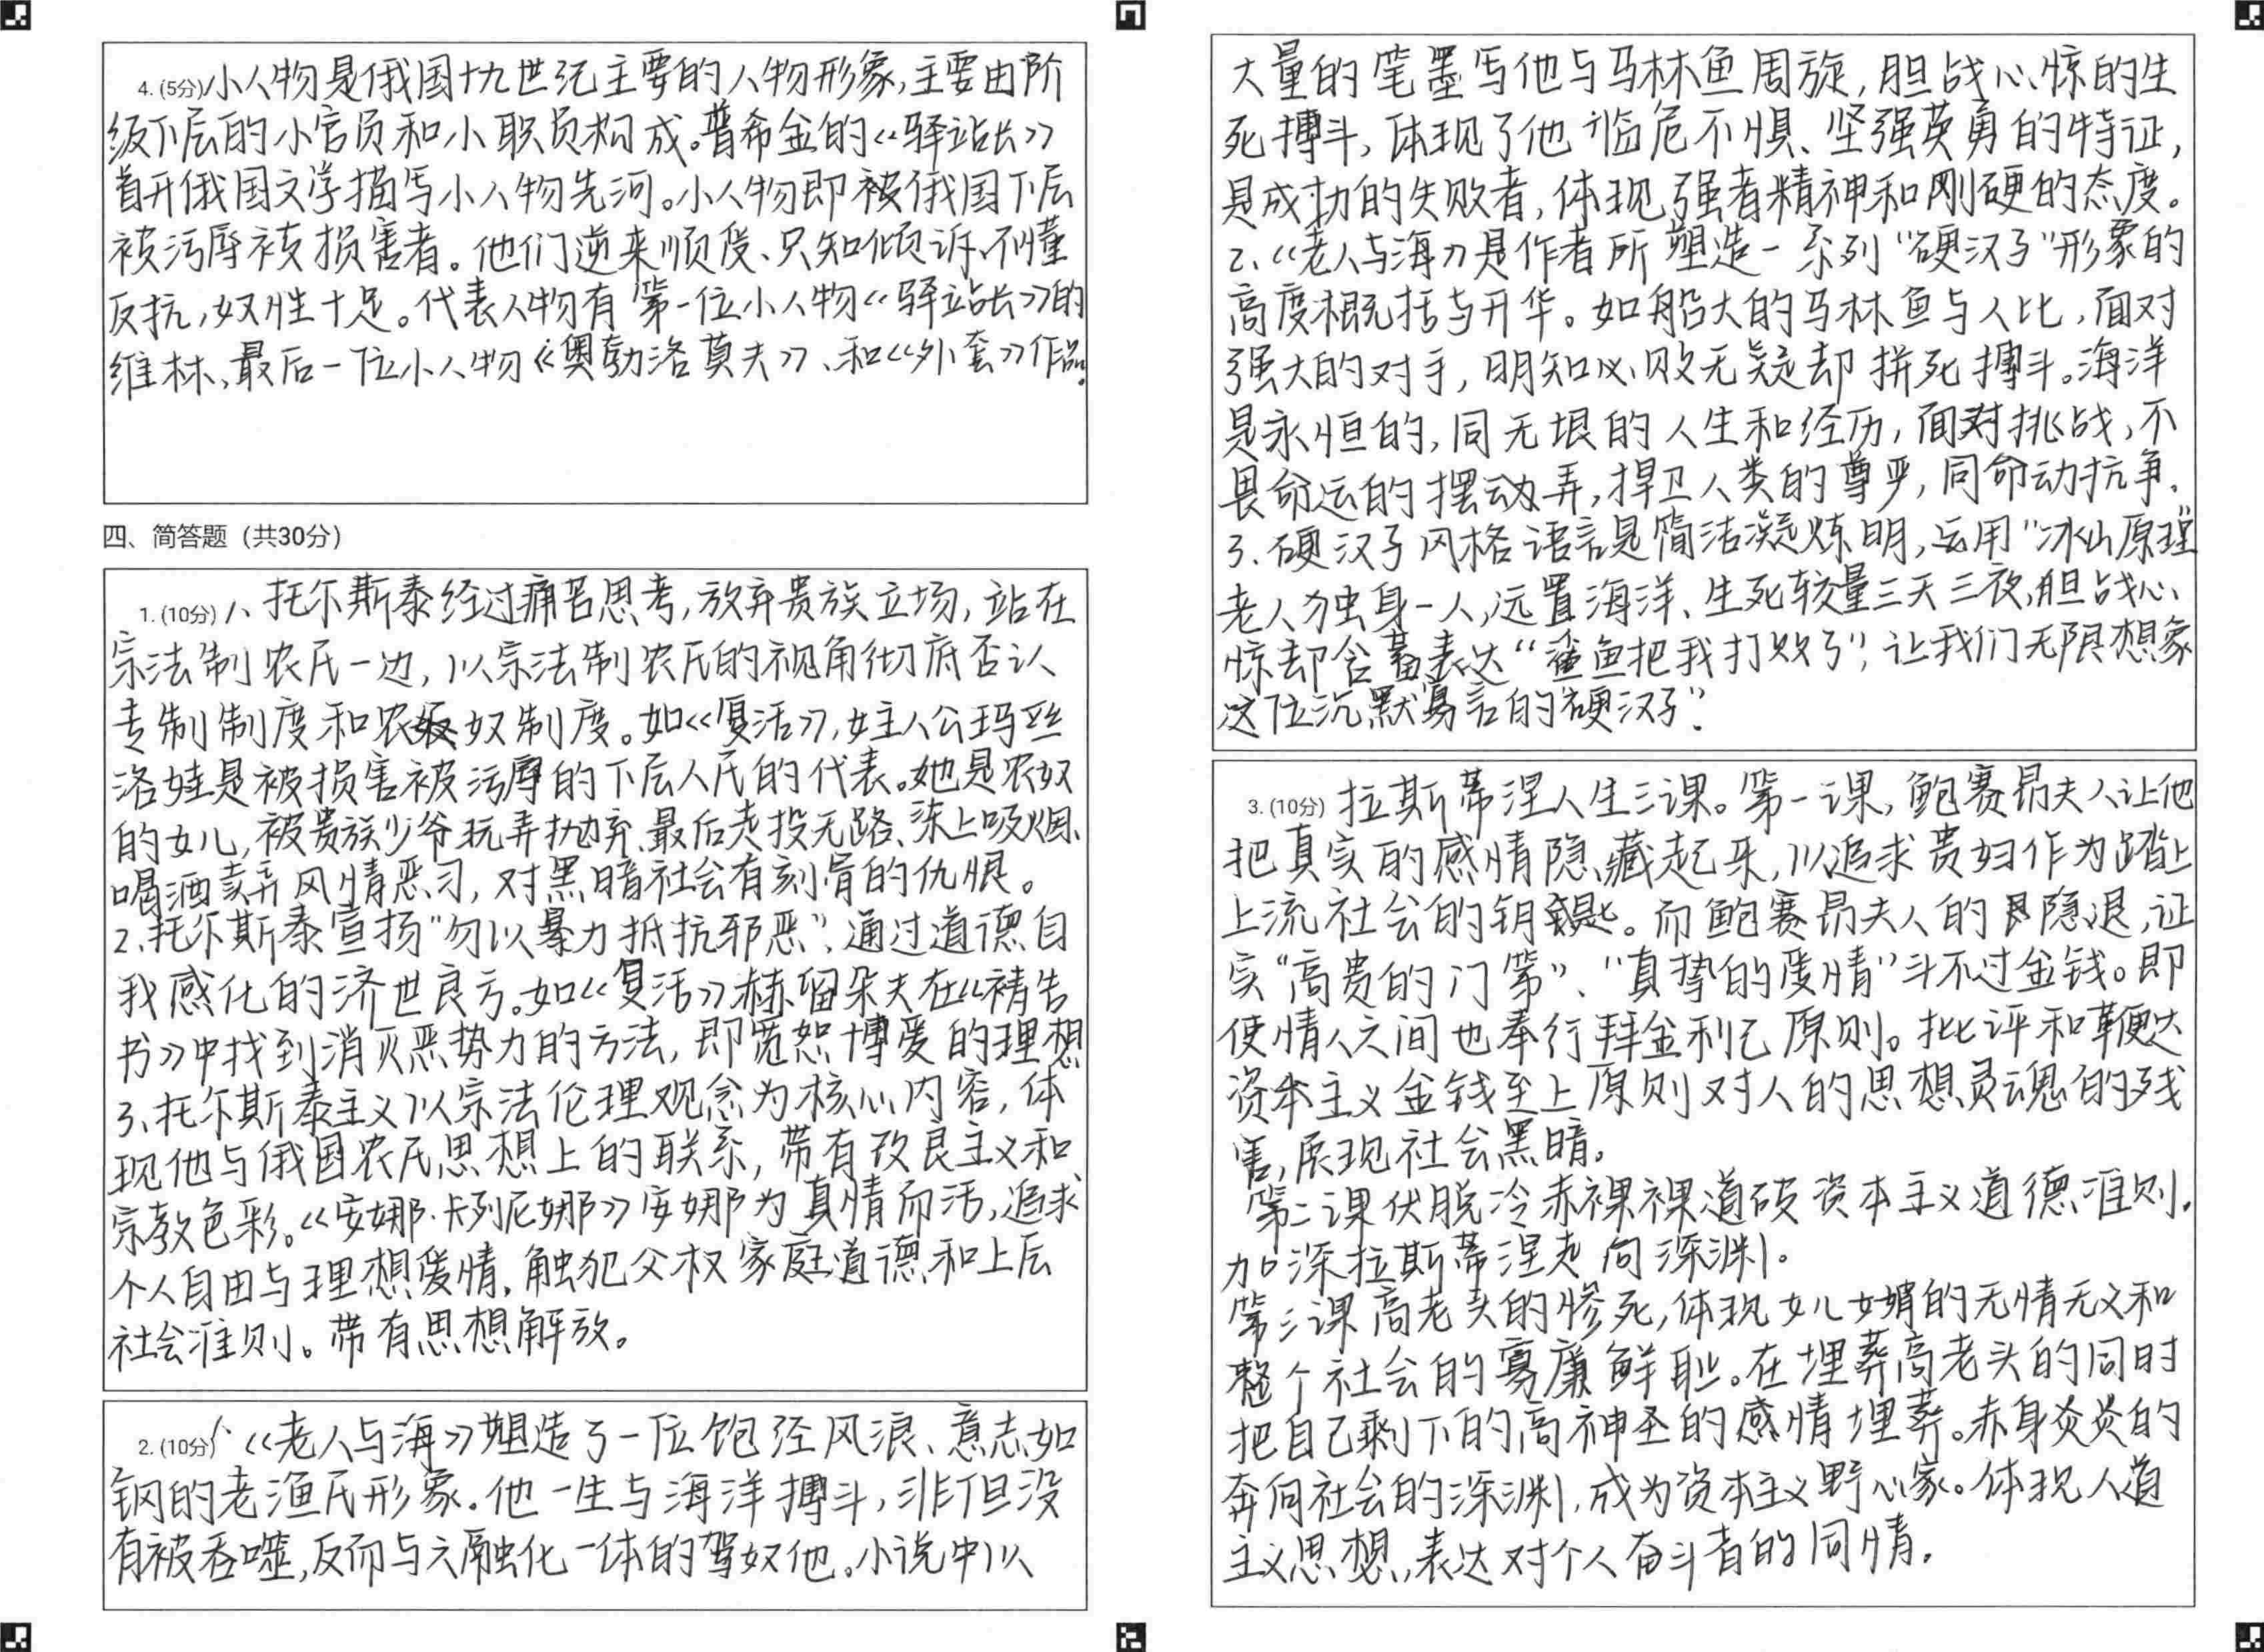 4. (5分)小人物是俄国十九世纪主要的人物形象,主要由阶
级下层的小官员和小职员构成。普希金的《驿站长》
首开俄国文学描写小人物先河。小人物即被俄国下层
被污辱被损害者。他们逆来顺受、只知倾诉、不懂
反抗,奴性十足。代表人物有第一位小人物《驿站长》的
维林、最后一位小人物《奥勃洛莫夫》、和《外套》作品。
四、简答题(共30分)
1. (10分) 1、托尔斯泰经过痛苦思考,放弃贵族立场,站在
宗法制农民一边,以宗法制农民的视角彻底否认
专制制度和农奴制度。如《复活》,女主人公玛丝
洛娃是被损害被污辱的下层人民的代表。她是农奴
的女儿,被贵族少爷玩弄抛弃、最后走投无路、染上吸烟、
喝酒卖弄风情恶习,对黑暗社会有刻骨的仇恨。
2、托尔斯泰宣扬“勿以暴力抵抗邪恶”、通过道德自
我感化的济世良方。如《复活》赫留朵夫在《祷告
书》中找到消灭恶势力的方法,即宽恕博爱的理想
3、托尔斯泰主义以宗法伦理观念为核心内容,体
现他与俄国农民思想上的联系,带有改良主义和
宗教色彩。《安娜·卡列尼娜》安娜为真情而活,追求
个人自由与理想爱情,触犯父权家庭道德和上层
社会准则。带有思想解放。
2. (10分) 1、《老人与海》塑造了一位饱经风浪、意志如
钢的老渔民形象。他一生与海洋搏斗,非但没
有被吞噬,反而与之融化一体的驾奴他。小说中以
大量的笔墨写他与马林鱼周旋,胆战心惊的生
死搏斗,体现了他临危不惧、坚强英勇的特证,
是成功的失败者,体现强者精神和刚硬的态度。
2、《老人与海》是作者所塑造一系列“硬汉子”形象的
高度概括与升华。如船大的马林鱼与人比,面对
强大的对手,明知必败无疑却拼死搏斗。海洋
是永恒的,同无垠的人生和经历,面对挑战,不
畏命运的摆动弄,捍卫人类的尊严,同命动抗争.
3. 硬汉子风格语言是简洁凝炼明,运用“冰山原理”
老人独身一人,远置海洋、生死较量三天三夜,胆战心
惊却含蓄表达“鲨鱼把我打败了”,让我们无限想象
这位沉默寡言的“硬汉子”.
3. (10分) 拉斯蒂涅人生三课。第一课,鲍赛昂夫人让他
把真实的感情隐藏起来,以追求贵妇作为踏上
上流社会的钥匙。而鲍赛昂夫人的隐退,证
实“高贵的门第”、“真挚的爱情”斗不过金钱。即
使情人之间也奉行拜金利己原则。批评和鞭达
资本主义金钱至上原则对人的思想灵魂的残
害,展现社会黑暗。
第二课伏脱冷赤裸裸道破资本主义道德准则.
加深拉斯蒂涅走向深渊。
第三课高老头的惨死,体现女儿女婿的无情无义和
整个社会的寡廉鲜耻。在埋葬高老头的同时
把自己剩下的高神圣的感情埋葬。赤身炎炎的
奔向社会的深渊,成为资本主义野心家。体现人道
主义思想,表达对个人奋斗者的同情.